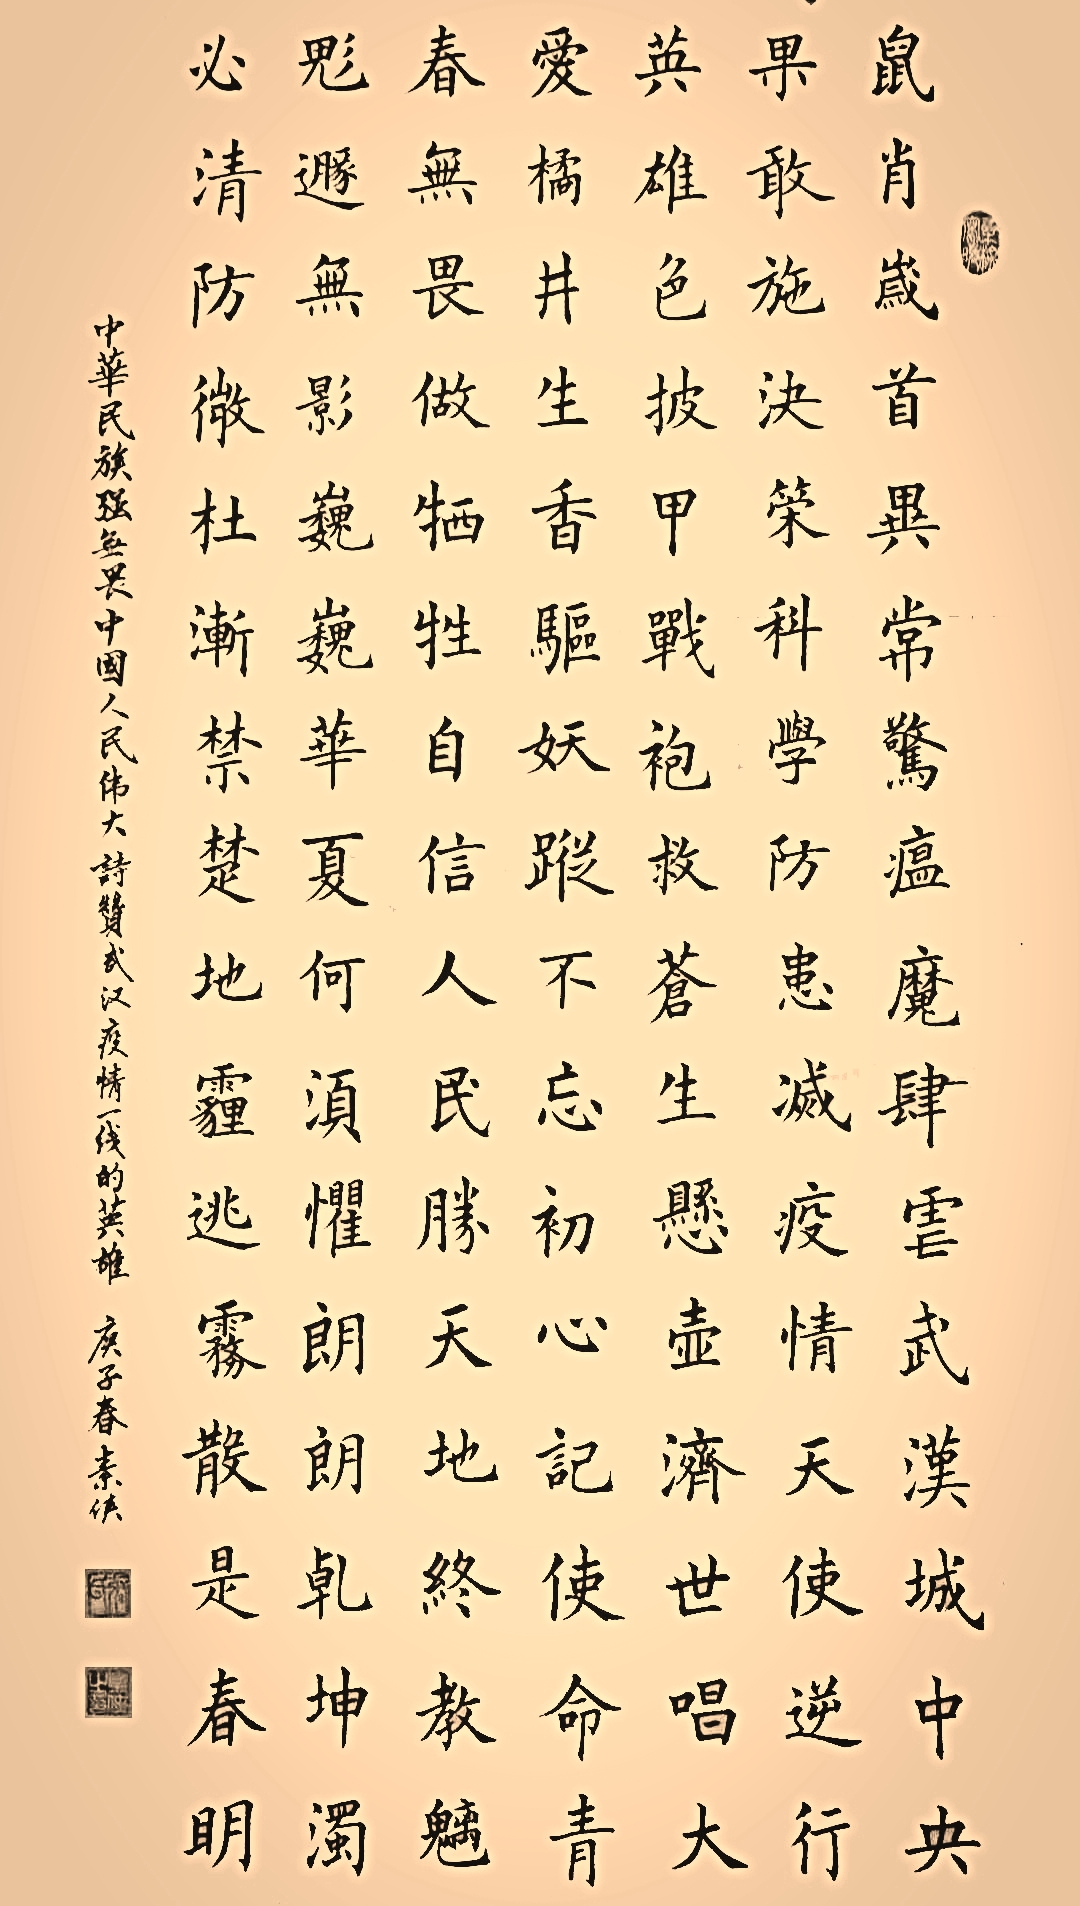 鼠肖歲首異常驚瘟魔肆虐武漢城中央
果敢施決策科學防患滅疫情天使逆行
英雄色披甲戰袍救蒼生懸壺濟世唱大
愛橘井生香驅妖蹤不忘初心記使命青
春無畏做牺牲自信人民勝天地終教魑
魁遯無影巍巍華夏何須懼朗朗乾坤濁
必清防微杜漸禁楚地霾逃霧散是春明
中華民族强無畏中國人民伟大詩贊武汉疫情一线的英雄 庚子春素侠